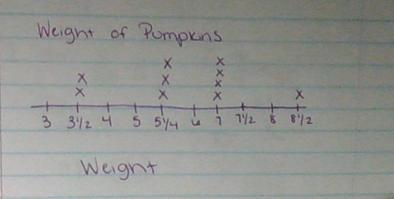 Weight of Pumpkins
x x
x x x
x x x x
x
3 3 1/2 4 5 5 1/4 6 7 7 1/2 8 8 1/2
Weight